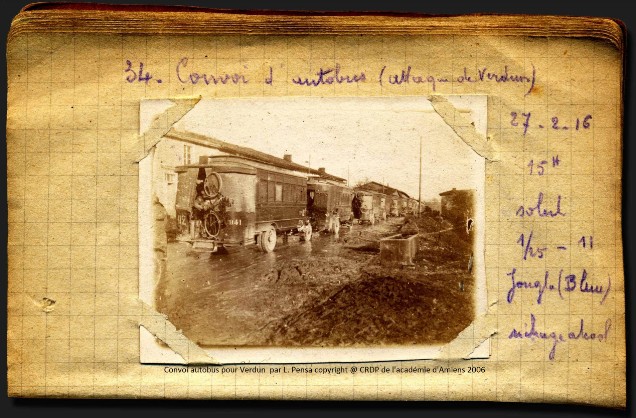 34. Convoi d'autobus (attaque de Verdun)
27-2-16
15H
soleil
1/25 - 11
Jougla (Bleu)
séchage alcool
1141
Convoi autobus pour Verdun par L. Pensa copyright @ CRDP de l'académie d'Amiens 2006